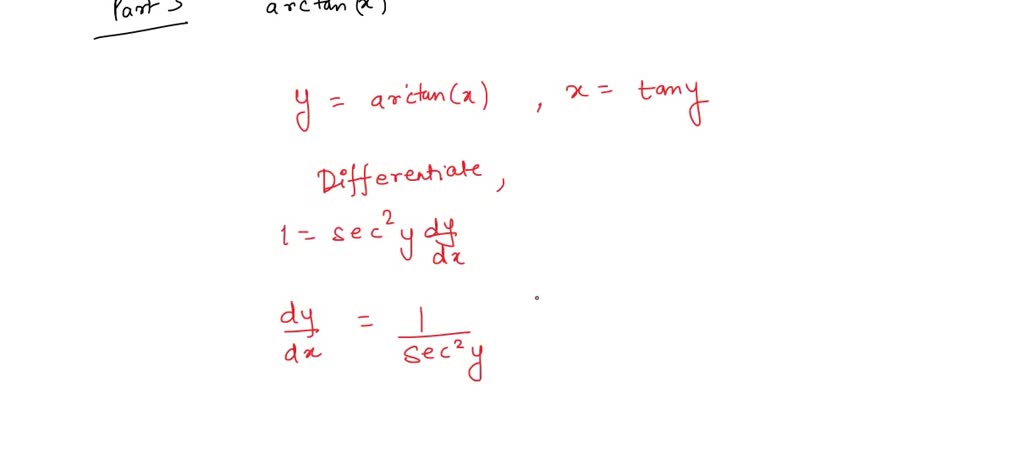 Part 3 arctan(x)
y = arctan(x) , x = tany
Differentiate,
1 = sec²y dy/dx
dy/dx = 1/sec²y